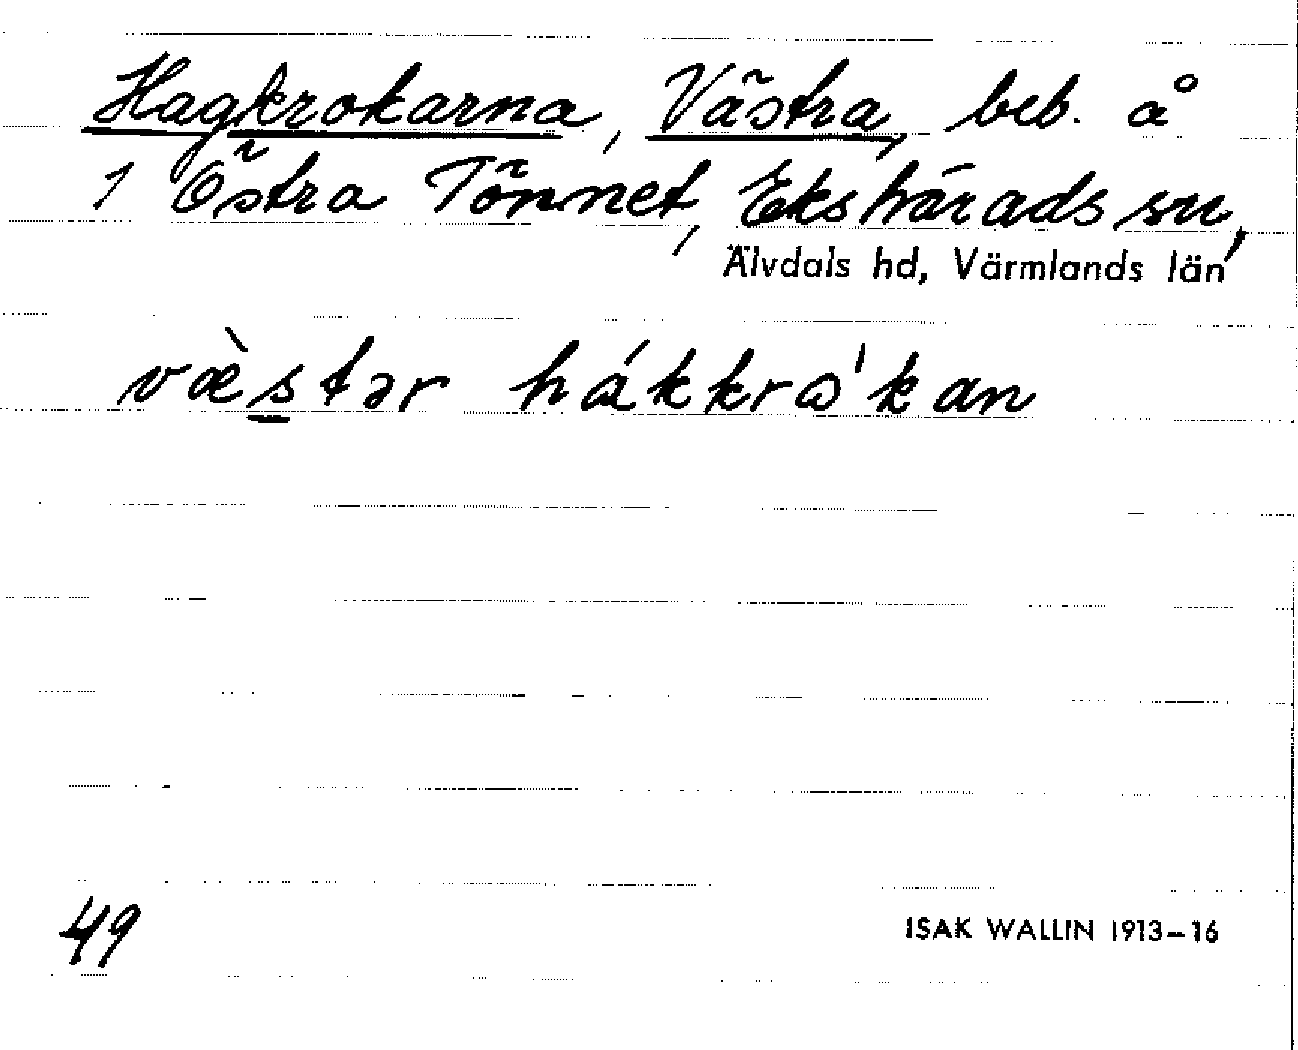 Hagkrokarna, Västra, beb. å
1 Östra Tönnet, Ekshärads sn,
Älvdals hd, Värmlands län
væ̀stər hákkrɷ'kan
49
ISAK WALLIN 1913–16